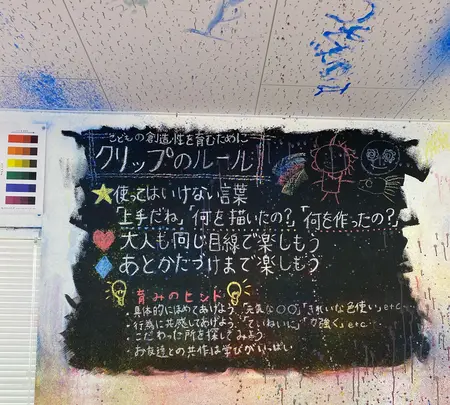 こどもの創造性を育むために
クリップのルール
使ってはいけない言葉
「上手だね」「何を描いたの?」「何を作ったの?」
大人も同じ目線で楽しもう
あとかたづけまで楽しもう
育みのヒント
・具体的にほめてあげよう 「元気な〇〇」「きれいな色使い」etc
・行為に共感してあげよう 「ていねいに」「力強く」etc
・こだわった所を探してみよう
・お友達との共作は学びがいっぱい